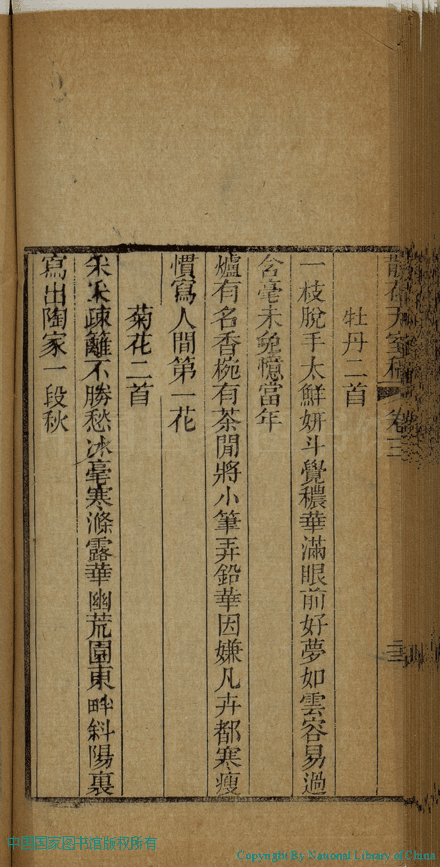 牡丹二首
一枝脫手太鮮妍斗覺穠華滿眼前好夢如雲容易過
含毫未免憶當年
爐有名香椀有茶閒將小筆弄鉛華因嫌凡卉都寒瘦
慣寫人間第一花
菊花二首
采采疎籬不勝愁冰毫寒滌露華幽荒園東畔斜陽裏
寫出陶家一段秋
中国国家图书馆版权所有
Copyright By National Library of China